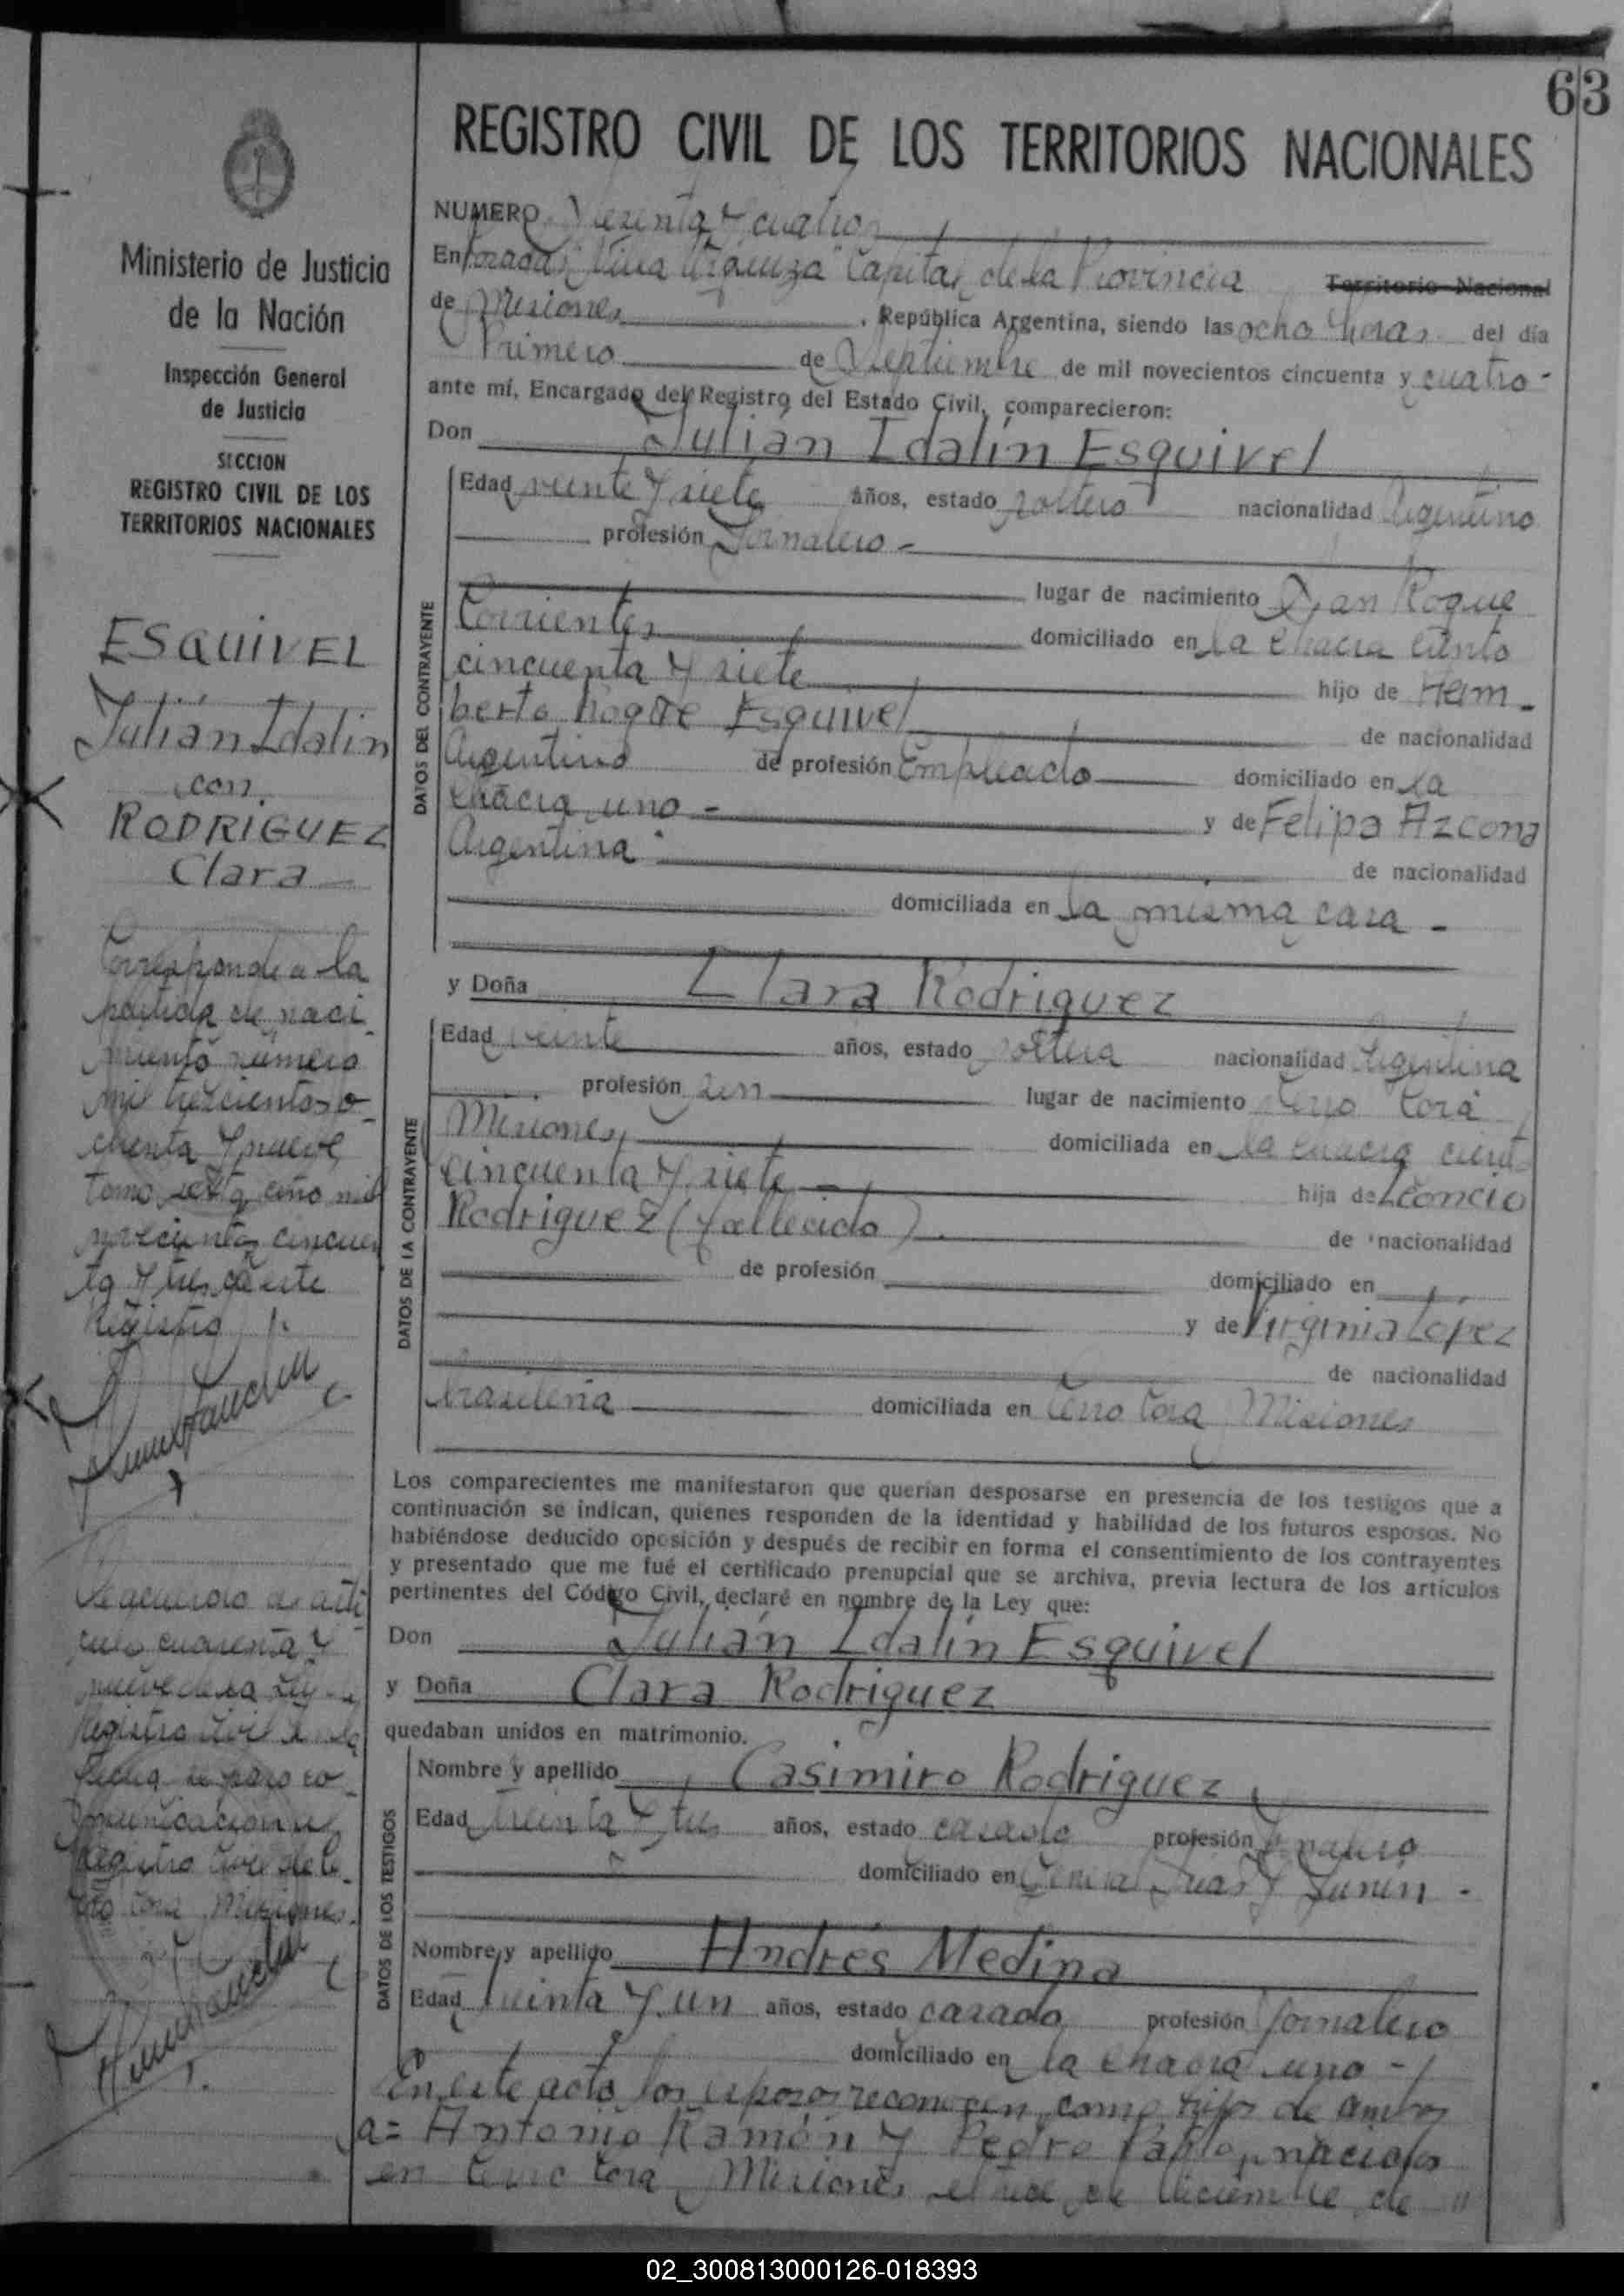 63
REGISTRO CIVIL DE LOS TERRITORIOS NACIONALES
Ministerio de Justicia
de la Nación
Inspección General
de Justicia
SECCION
REGISTRO CIVIL DE LOS
TERRITORIOS NACIONALES
ESQUIVEL
Julián Idalin
con
RODRIGUEZ
Clara
Corresponde a la
partida de naci
miento número
mil trescientos o
chenta y nueve
tomo año mil
novecientos cincuen
ta y tres de este
Registro
De acuerdo al artí
culo cuarenta y
nueve de la Ley
Registro Civil en la
fecha se pasó co
municación al
Registro Civil de Ce
rro Corá Misiones.
NUMERO Sesenta y cuatro
En Posadas Capital de la Provincia Territorio Nacional
de Misiones, República Argentina, siendo las ocho horas del día
Primero de Septiembre de mil novecientos cincuenta y cuatro -
ante mí, Encargado del Registro del Estado Civil, comparecieron:
Don Julián Idalín Esquivel
DATOS DEL CONTRAYENTE
Edad veinte y siete años, estado soltero nacionalidad Argentino
profesión Jornalero -
lugar de nacimiento San Roque
Corrientes domiciliado en la chacra ciento
cincuenta y siete hijo de Herm-
berto Roque Esquivel de nacionalidad
Argentino de profesión Empleado domiciliado en la
chacra uno - y de Felipa Azcona
Argentina de nacionalidad
domiciliada en la misma casa -
y Doña Clara Rodriguez
DATOS DE LA CONTRAYENTE
Edad veinte años, estado soltera nacionalidad Argentina
profesión sin lugar de nacimiento Cerro Corá
Misiones domiciliada en la chacra ciento
cincuenta y siete - hija de Leoncio
Rodriguez (fallecido) de nacionalidad
de profesión domiciliado en
y de Virginia López
de nacionalidad
brasileña domiciliada en Cerro Corá Misiones
Los comparecientes me manifestaron que querían desposarse en presencia de los testigos que a
continuación se indican, quienes responden de la identidad y habilidad de los futuros esposos. No
habiéndose deducido oposición y después de recibir en forma el consentimiento de los contrayentes
y presentado que me fué el certificado prenupcial que se archiva, previa lectura de los artículos
pertinentes del Código Civil, declaré en nombre de la Ley que:
Don Julián Idalín Esquivel
y Doña Clara Rodriguez
quedaban unidos en matrimonio.
DATOS DE LOS TESTIGOS
Nombre y apellido Casimiro Rodriguez
Edad treinta y tres años, estado casado profesión Jornalero
domiciliado en y Junín -
Nombre y apellido Andrés Medina
Edad treinta y un años, estado casado profesión Jornalero
domiciliado en la chacra uno -
En este acto los esposos reconocen como hijos de ambos
a= Antonio Ramón y Pedro Pablo, nacidos
en Cerro Corá Misiones, el de Diciembre de "
02_300813000126-018393